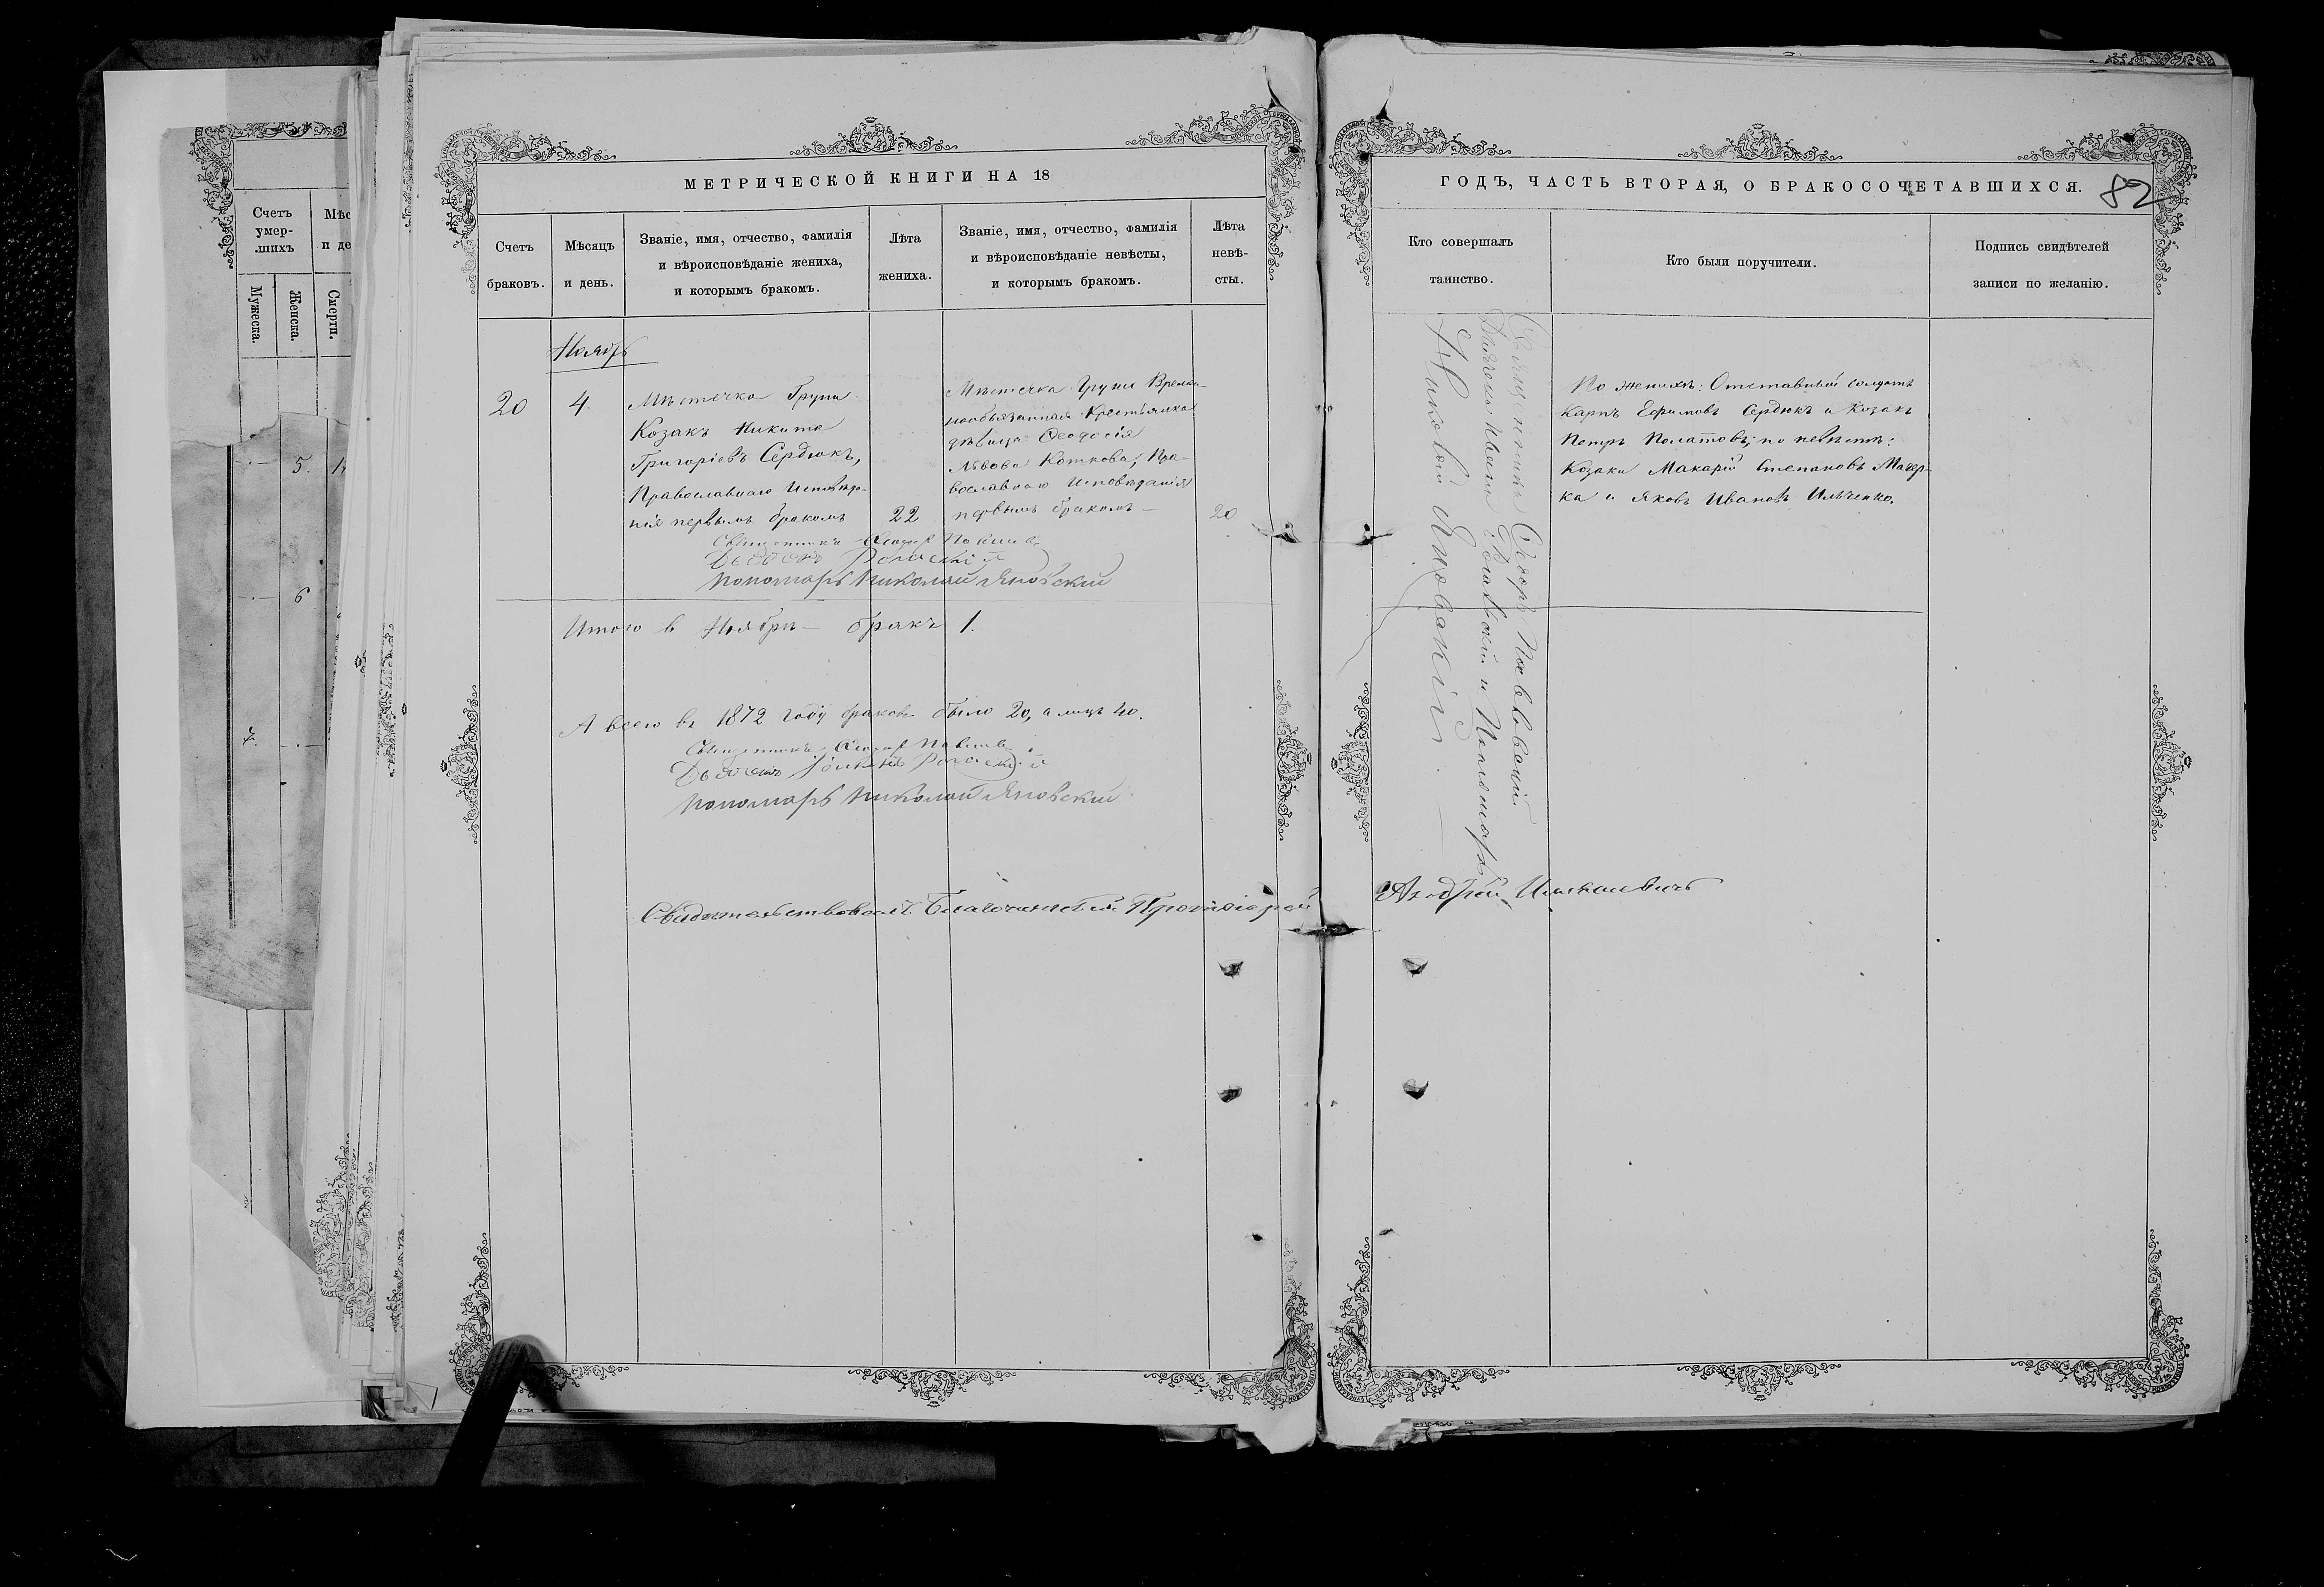 МЕТРИЧЕСКОЙ КНИГИ НА 18
Счетъ
браковъ.
Мѣсяцъ
и день.
Званіе, имя, отчество, фамилія
и вѣроисповѣданіе жениха,
и которымъ бракомъ.
Лѣта
жениха.
Званіе, имя, отчество, фамилія
и вѣроисповѣданіе невѣсты,
и которымъ бракомъ.
Лѣта
невѣ-
сты.
Ноябрь
20
4
Мѣстечка Груни
Козакъ Никита
Григоріевъ Сердюкъ,
Православнаго Исповѣда-
нія первымъ бракомъ
22
Мѣстечка Груни Времен-
нообязанная Крестьянка
дѣвица Ѳеодосія
Львова Коткова, Пра-
вославнаго Исповѣданія
первымъ бракомъ
20
Священникъ
Дьячекъ
Пономарь Николай Яновский
Итого в Ноябрѣ — бракъ 1.
А всего въ 1872 году браковъ было 20, а лицъ 40.
Священникъ
Дьячекъ
Пономарь Николай Яновский
Свидѣтельствовалъ Благочинный Протоіерей
Андрей
ГОДЪ, ЧАСТЬ ВТОРАЯ, О БРАКОСОЧЕТАВШИХСЯ.
82
Кто совершалъ
таинство.
Кто были поручители.
Подпись свидѣтелей
записи по желанію.
Священникъ Ѳеодоръ
Дьячекъ и Пономарь
Николай Яновскій
По женихѣ: Отставный солдатъ
Карпъ Ефимовъ Сердюкъ и Козакъ
Петръ по невѣстѣ:
Козаки Макарій Степановъ Мачер-
ка и Яковъ Ивановъ Ильченко.
Счетъ
умер-
шихъ
Мужеска.
Женска.
Мѣс
и де
Смерти.
5.
6
7.